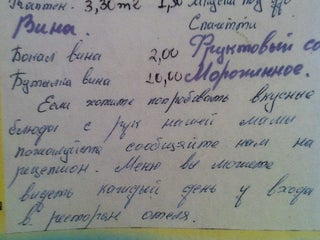 Каптен. 3,30 m2 1,50
Вина. Спагетти
Бокал вина 2,00 Фруктовый са
Бутылка вина 10,00 Мороженное.
Если хотите попробовать вкусные
блюда с рук нашей мамы
пожалуйста сообщайте нам на
рецепшон. Меню вы можете
видеть каждый день у входа
в ресторан отеля.